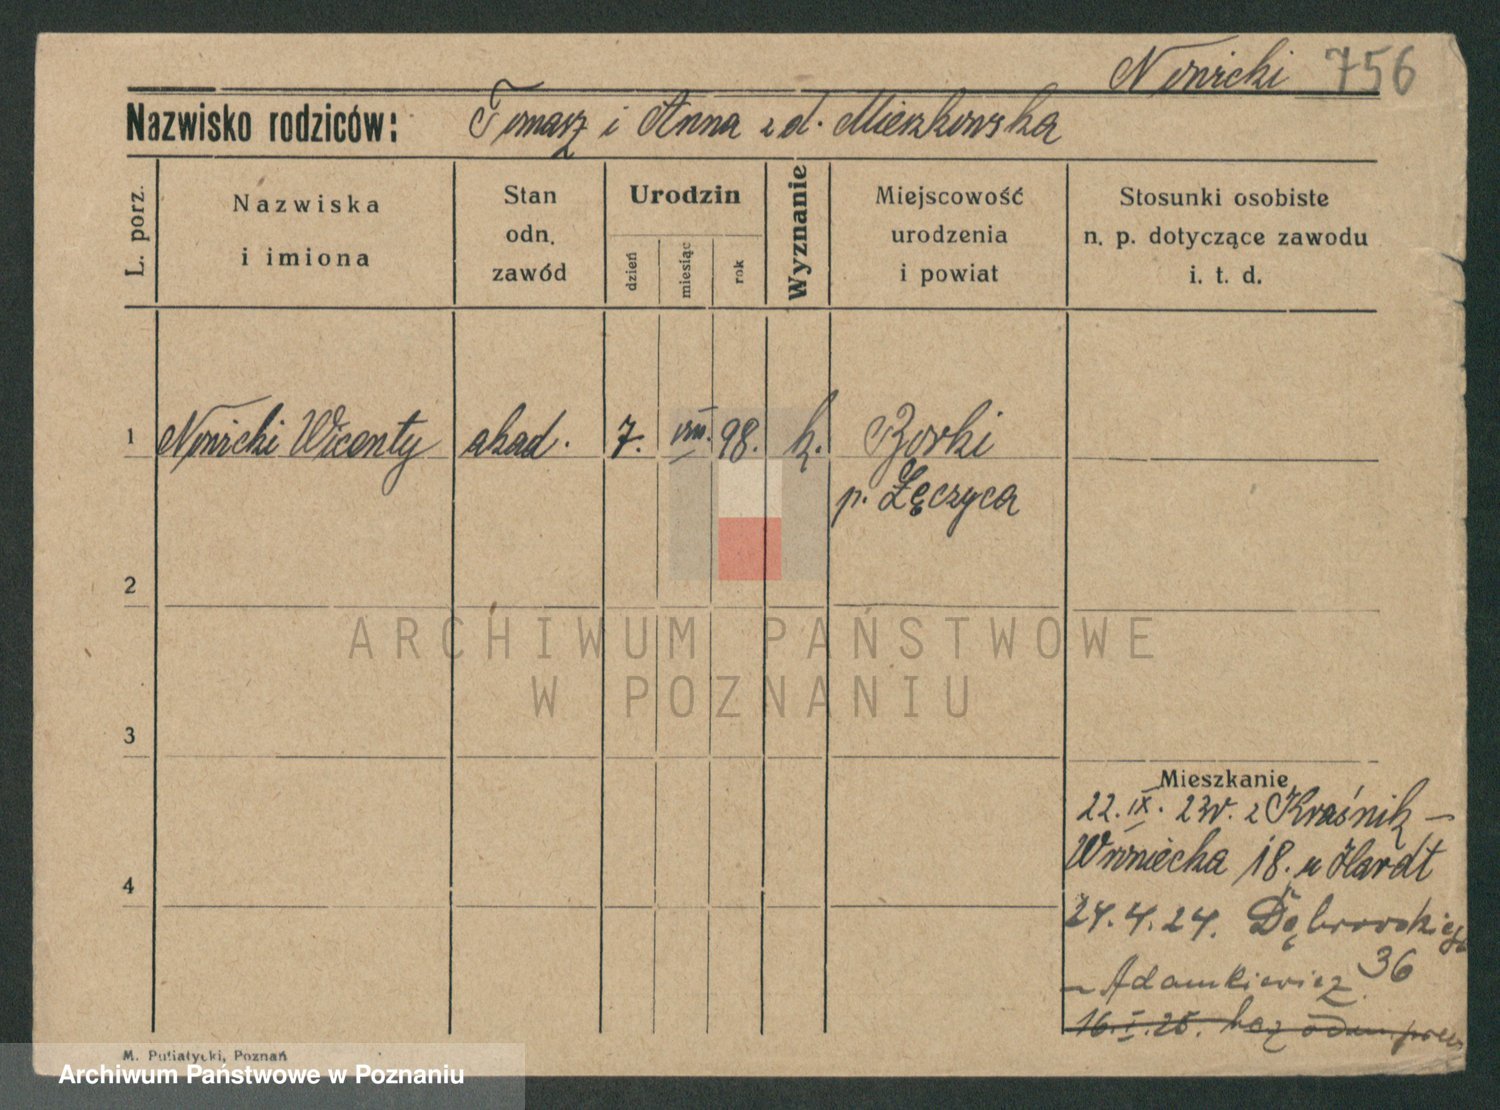 Nowicki 756
Nazwisko rodziców: Tomasz i Anna z d. Mieszkowska
L. porz.
Nazwiska
i imiona
Stan
odn.
zawód
Urodzin
dzień
miesiąc
rok
Wyznanie
Miejscowość
urodzenia
i powiat
Stosunki osobiste
n. p. dotyczące zawodu
i. t. d.
1 Nowicki Wicenty akad. 7. VIII. 98. k. Borki
p. Łęczyca
2
ARCHIWUM PAŃSTWOWE
W POZNANIU
3
Mieszkanie
22. IX. 23r. z Kraśnik –
Woźniecka 18. u Hardt
4
24.4.24. Dąbrowskiego
36
u Adamkiewicz
16.I.25. bez odm.
M. Putiatycki, Poznań
Archiwum Państwowe w Poznaniu